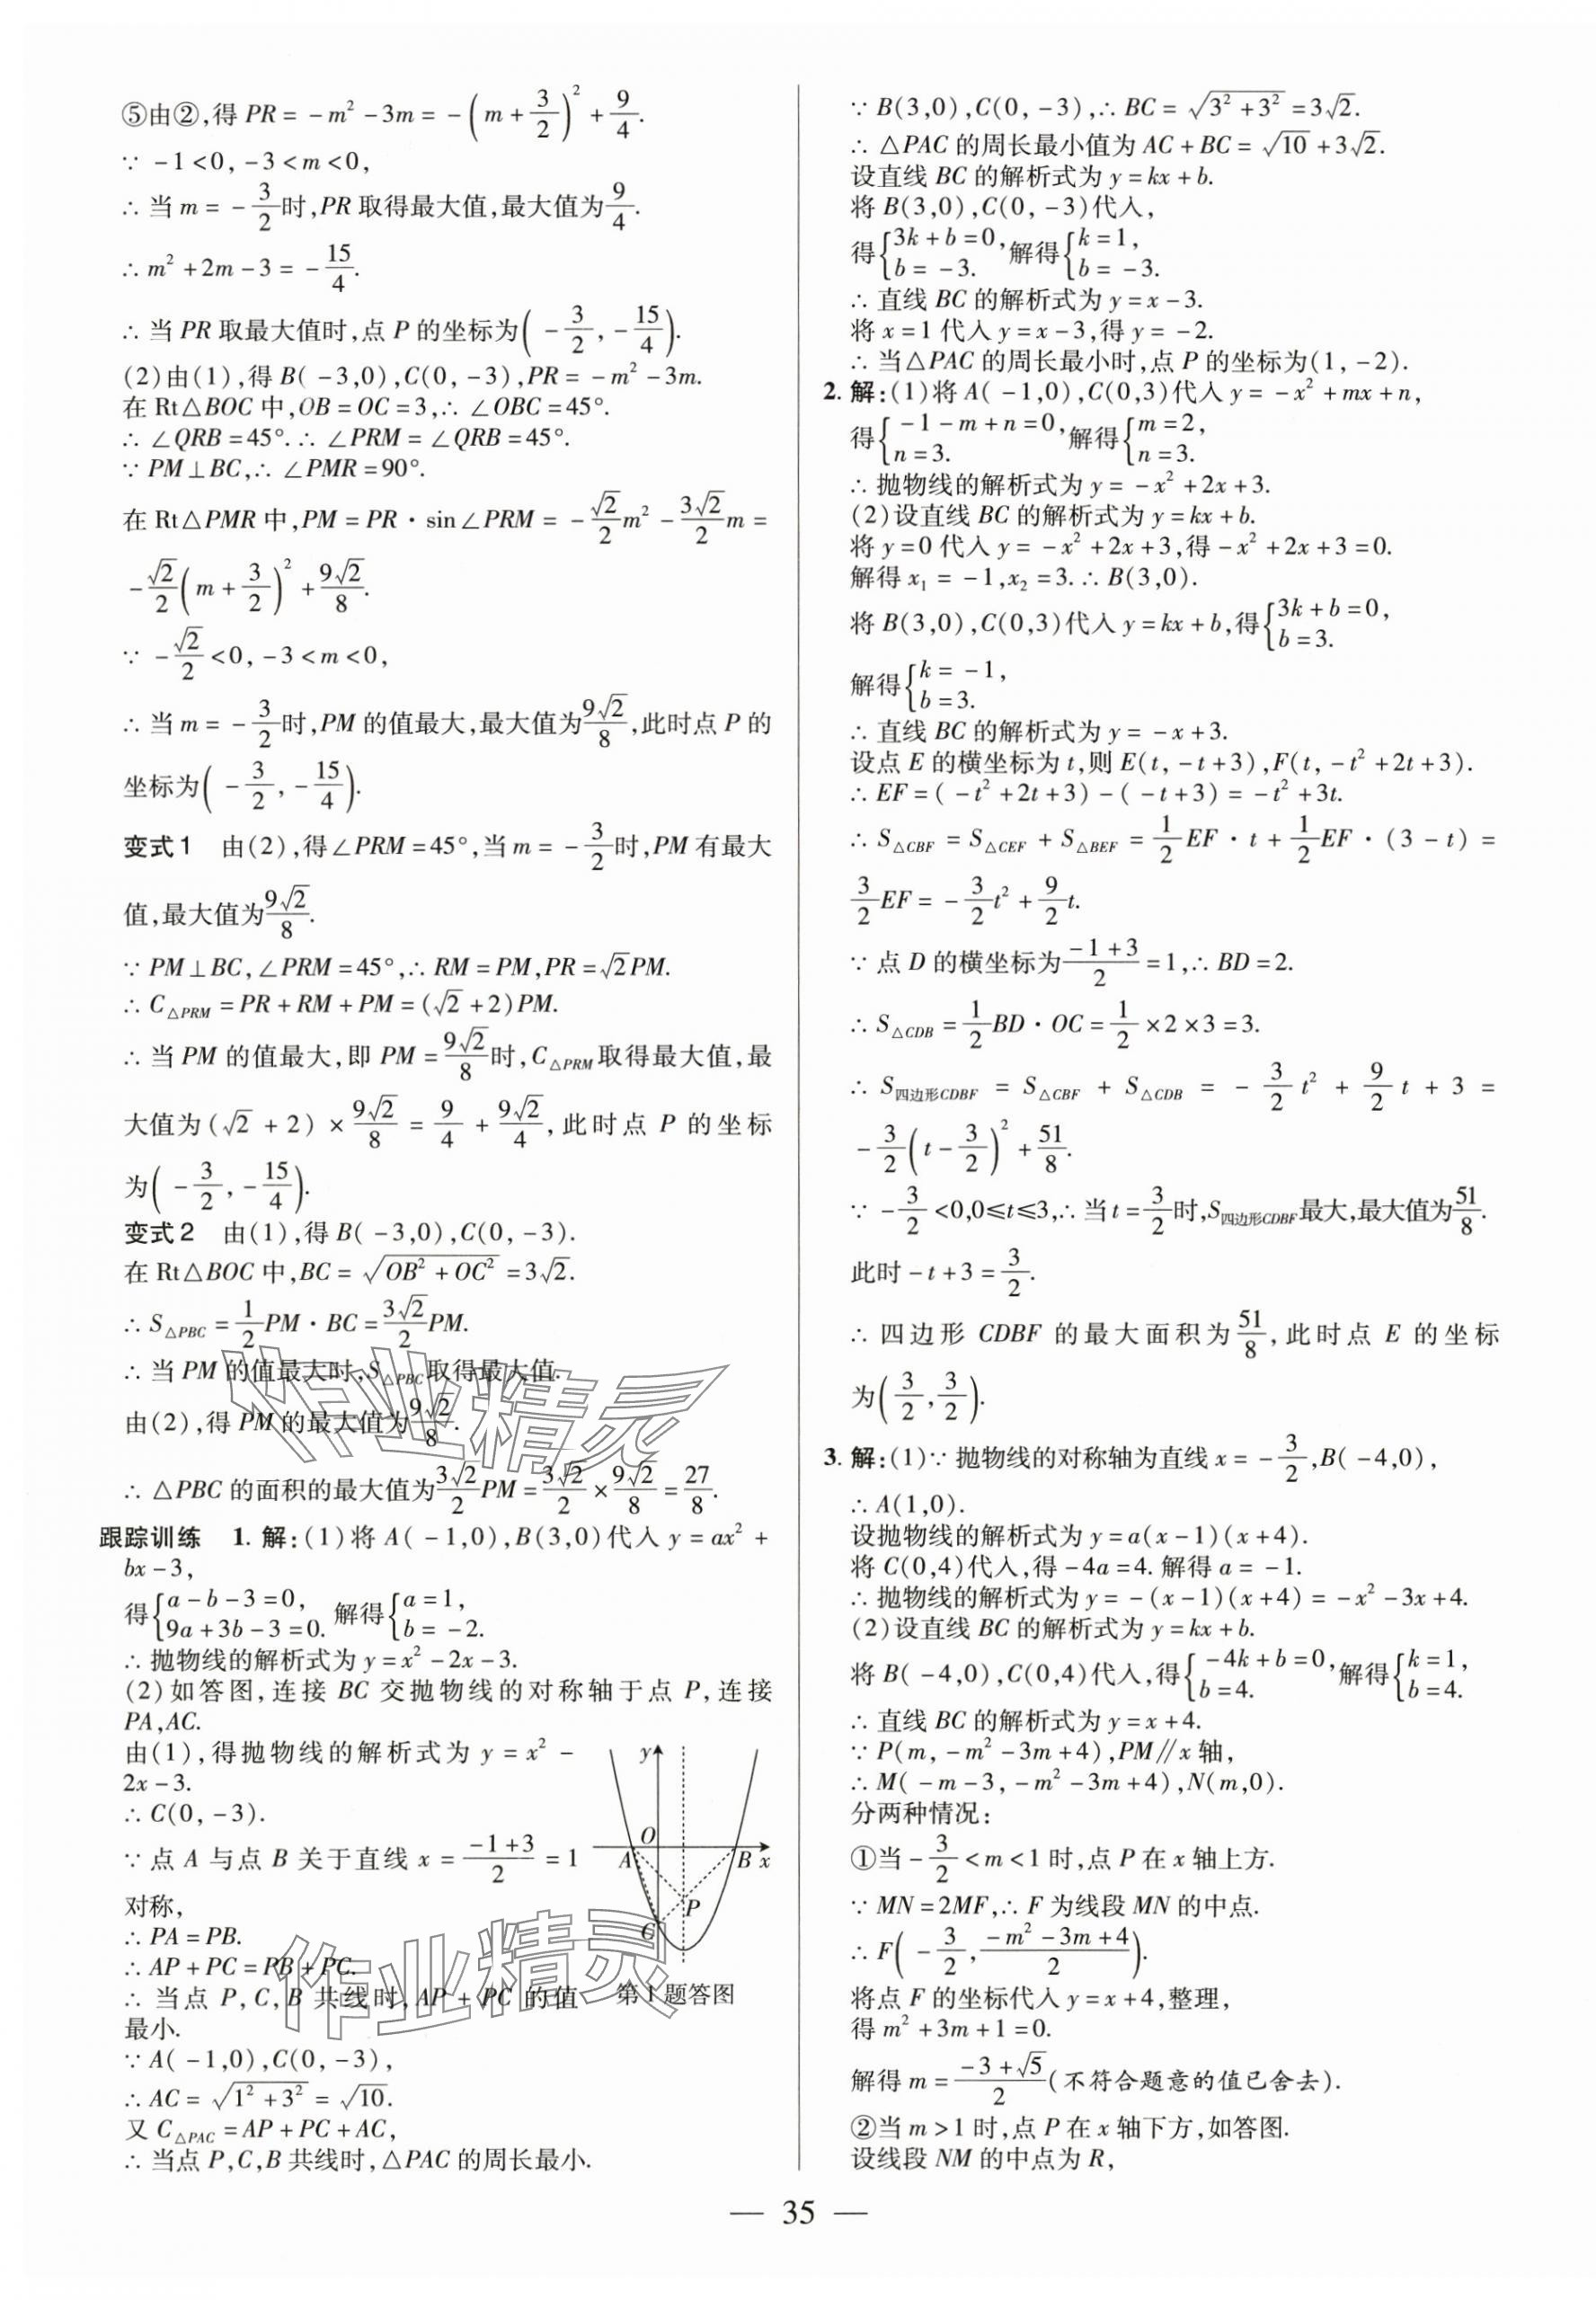 ⑤由②,得 PR = -m² - 3m = -(m + 3/2)² + 9/4.
∵ -1<0, -3<m<0,
∴ 当 m = -3/2 时,PR 取得最大值,最大值为 9/4.
∴ m² + 2m - 3 = -15/4.
∴ 当 PR 取最大值时,点 P 的坐标为(-3/2, -15/4).
(2)由(1),得 B(-3,0),C(0,-3),PR = -m² - 3m.
在 Rt△BOC 中,OB = OC = 3,∴ ∠OBC = 45°.
∴ ∠QRB = 45°.∴ ∠PRM = ∠QRB = 45°.
∵ PM⊥BC,∴ ∠PMR = 90°.
在 Rt△PMR 中,PM = PR · sin∠PRM = -√2/2 m² - 3√2/2 m =
-√2/2 (m + 3/2)² + 9√2/8.
∵ -√2/2 < 0, -3 < m < 0,
∴ 当 m = -3/2 时,PM 的值最大,最大值为 9√2/8,此时点 P 的
坐标为(-3/2, -15/4).
变式1 由(2),得∠PRM = 45°,当 m = -3/2 时,PM 有最大
值,最大值为 9√2/8.
∵ PM⊥BC,∠PRM = 45°,∴ RM = PM,PR = √2PM.
∴ C△PRM = PR + RM + PM = (√2 + 2)PM.
∴ 当 PM 的值最大,即 PM = 9√2/8 时,C△PRM 取得最大值,最
大值为 (√2 + 2) × 9√2/8 = 9/4 + 9√2/4,此时点 P 的坐标
为(-3/2, -15/4).
变式2 由(1),得 B(-3,0),C(0,-3).
在 Rt△BOC 中,BC = √(OB² + OC²) = 3√2.
∴ S△PBC = 1/2 PM · BC = 3√2/2 PM.
∴ 当 PM 的值最大时,S△PBC 取得最大值.
由(2),得 PM 的最大值为 9√2/8.
∴ △PBC 的面积的最大值为 3√2/2 PM = 3√2/2 × 9√2/8 = 27/8.
跟踪训练 1. 解:(1)将 A(-1,0),B(3,0)代入 y = ax² +
bx - 3,
得{a - b - 3 = 0, 9a + 3b - 3 = 0. 解得{a = 1, b = -2.
∴ 抛物线的解析式为 y = x² - 2x - 3.
(2)如答图,连接 BC 交抛物线的对称轴于点 P,连接
PA,AC.
由(1),得抛物线的解析式为 y = x² -
2x - 3.
∴ C(0,-3).
∵ 点 A 与点 B 关于直线 x = (-1+3)/2 = 1
对称,
∴ PA = PB.
∴ AP + PC = PB + PC.
∴ 当点 P,C,B 共线时,AP + PC 的值
最小.
y
O
A
B
x
P
C
第1题答图
∵ A(-1,0),C(0,-3),
∴ AC = √(1² + 3²) = √10.
又 C△PAC = AP + PC + AC,
∴ 当点 P,C,B 共线时,△PAC 的周长最小.
∵ B(3,0),C(0,-3),∴ BC = √(3² + 3²) = 3√2.
∴ △PAC 的周长最小值为 AC + BC = √10 + 3√2.
设直线 BC 的解析式为 y = kx + b.
将 B(3,0),C(0,-3)代入,
得{3k + b = 0, b = -3. 解得{k = 1, b = -3.
∴ 直线 BC 的解析式为 y = x - 3.
将 x = 1 代入 y = x - 3,得 y = -2.
∴ 当△PAC 的周长最小时,点 P 的坐标为(1,-2).
2. 解:(1)将 A(-1,0),C(0,3)代入 y = -x² + mx + n,
得{-1 - m + n = 0, n = 3. 解得{m = 2, n = 3.
∴ 抛物线的解析式为 y = -x² + 2x + 3.
(2)设直线 BC 的解析式为 y = kx + b.
将 y = 0 代入 y = -x² + 2x + 3,得 -x² + 2x + 3 = 0.
解得 x₁ = -1,x₂ = 3.∴ B(3,0).
将 B(3,0),C(0,3)代入 y = kx + b,得{3k + b = 0, b = 3.
解得{k = -1, b = 3.
∴ 直线 BC 的解析式为 y = -x + 3.
设点 E 的横坐标为 t,则 E(t,-t+3),F(t,-t²+2t+3).
∴ EF = (-t² + 2t + 3) - (-t + 3) = -t² + 3t.
∴ S△CBF = S△CEF + S△BEF = 1/2 EF · t + 1/2 EF · (3 - t) =
3/2 EF = -3/2 t² + 9/2 t.
∵ 点 D 的横坐标为 (-1+3)/2 = 1,∴ BD = 2.
∴ S△CDB = 1/2 BD · OC = 1/2 × 2 × 3 = 3.
∴ S四边形CDBF = S△CBF + S△CDB = -3/2 t² + 9/2 t + 3 =
-3/2 (t - 3/2)² + 51/8.
∵ -3/2 < 0,0≤t≤3,∴ 当 t = 3/2 时,S四边形CDBF 最大,最大值为 51/8.
此时 -t + 3 = 3/2.
∴ 四边形 CDBF 的最大面积为 51/8,此时点 E 的坐标
为(3/2, 3/2).
3. 解:(1)∵ 抛物线的对称轴为直线 x = -3/2,B(-4,0),
∴ A(1,0).
设抛物线的解析式为 y = a(x-1)(x+4).
将 C(0,4)代入,得 -4a = 4. 解得 a = -1.
∴ 抛物线的解析式为 y = -(x-1)(x+4) = -x² - 3x + 4.
(2)设直线 BC 的解析式为 y = kx + b.
将 B(-4,0),C(0,4)代入,得{-4k + b = 0, b = 4. 解得{k = 1, b = 4.
∴ 直线 BC 的解析式为 y = x + 4.
∵ P(m,-m²-3m+4),PM∥x 轴,
∴ M(-m-3,-m²-3m+4),N(m,0).
分两种情况:
①当 -3/2 < m < 1 时,点 P 在 x 轴上方.
∵ MN = 2MF,∴ F 为线段 MN 的中点.
∴ F(-3/2, (-m²-3m+4)/2).
将点 F 的坐标代入 y = x + 4,整理,
得 m² + 3m + 1 = 0.
解得 m = (-3+√5)/2 (不符合题意的值已舍去).
②当 m > 1 时,点 P 在 x 轴下方,如答图.
设线段 NM 的中点为 R,
— 35 —
作业精灵
作业精灵